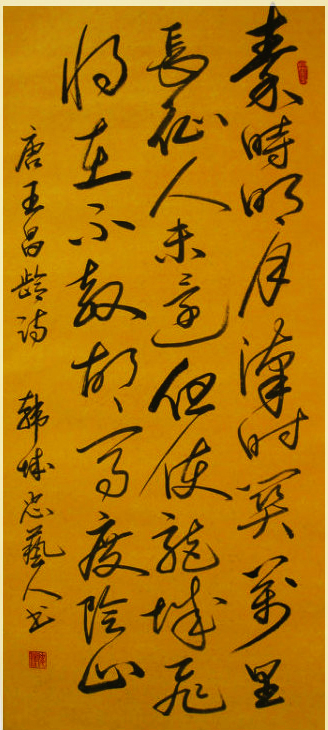 秦時明月漢時關萬里
長征人未還但使龍城飛
將在不教胡馬度陰山
唐王昌齡詩 韓城忠藝人書